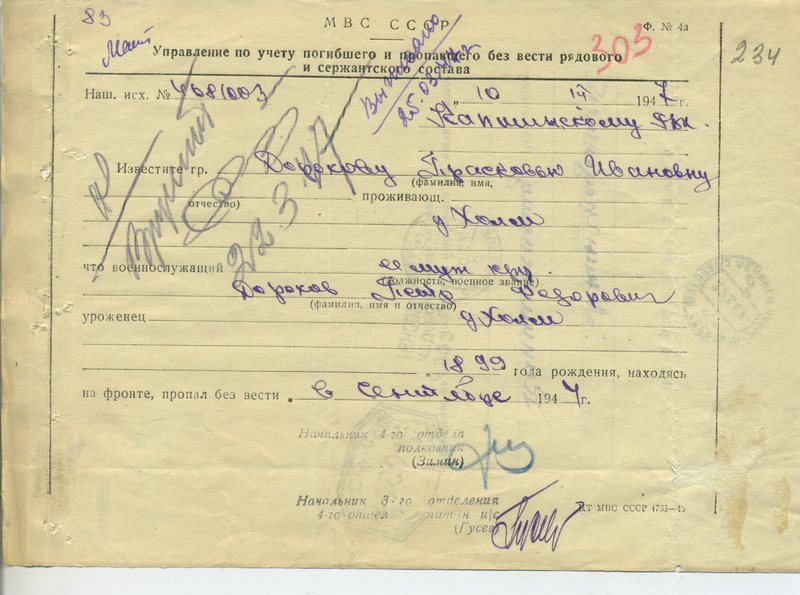 83
МВС СССР
Ф. № 4а
Управление по учету погибшего и пропавшего без вести рядового
и сержантского состава
303
234
Выписано
25.03.47г
Наш. исх. № 4081003
„ 10 IV 1947г.
Капшинскому РВк.
Известите гр. Дорокову Прасковью Ивановну
(фамилия, имя,
отчество) , проживающ.
д Холм
22 3 47
что военнослужащий ее муж кр-ц.
(должность, военное звание)
Дороков Петр Федорович
(фамилия, имя и отчество)
уроженец д Холм
1899 года рождения, находясь
на фронте, пропал без вести „ в Сентябре 1944г.
Начальник 4-го отдела
полковник
(Замин)
Начальник 3-го отделения
4-го отдел
(Гусев)
Гусев
Цт МВС СССР